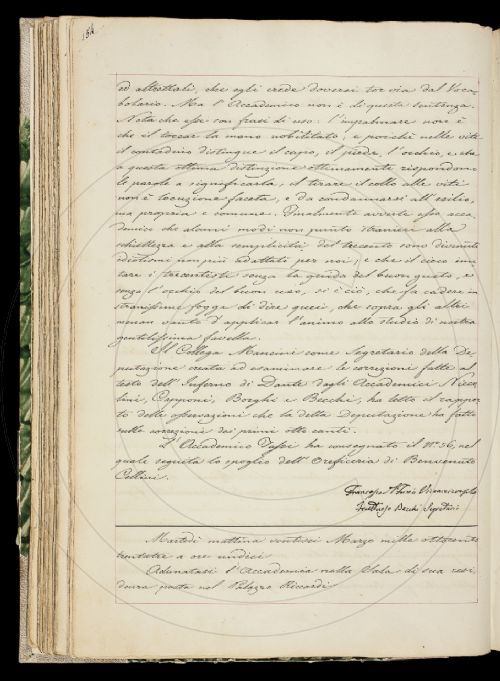 ed altrettali, che egli crede doversi tor via dal Voca-
bolario. Ma l'Accademico non è di questa sentenza.
Nota che esse con frasi di uso: l'impalmare non è
che il toccar la mano nobilitato, e poichè nella vite
il contadino distingue il capo, il piede, l'occhio, e che
a questa ottima distinzione ottimamente rispondono
le parole a significarla, il tirare il collo alle viti
non è locuzione faceta, e da condannarsi all'esilio,
ma propria e comune. Finalmente avverte esso acca-
demico che alcuni modi non punto stranieri alla
schiettezza e alla semplicità del trecento sono divenuti
idiotismi non più adattati per noi; e che il cieco imi-
tare i trecentisti senza la guida del buon gusto, e
senza l'occhio del buon uso, si è ciò, che fa cadere in
stranissime fogge di dire quei, che sopra gli altri
menan vanto d'applicar l'animo allo studio di nostra
gentilissima favella.
Il Collega Mancini come Segretario della De-
putazione creata ad esaminare le correzioni fatte al
testo dell'Inferno di Dante dagli Accademici Nicco-
lini, Capponi, Borghi e Becchi, ha letto il rappor-
to delle osservazioni che la detta Deputazione ha fatte
sulle correzioni dei primi otto canti.
L'Accademico ha consegnato il N.° 56, nel
quale seguita lo spoglio dell'Oreficeria di Benvenuto
Cellini.
Fruttuoso Becchi Segretario
Martedì mattina ventisei Marzo mille ottocento
trentatre a ore undici
Adunatasi l'Accademia nella Sala di sua resi-
denza posta nel Palazzo Riccardi